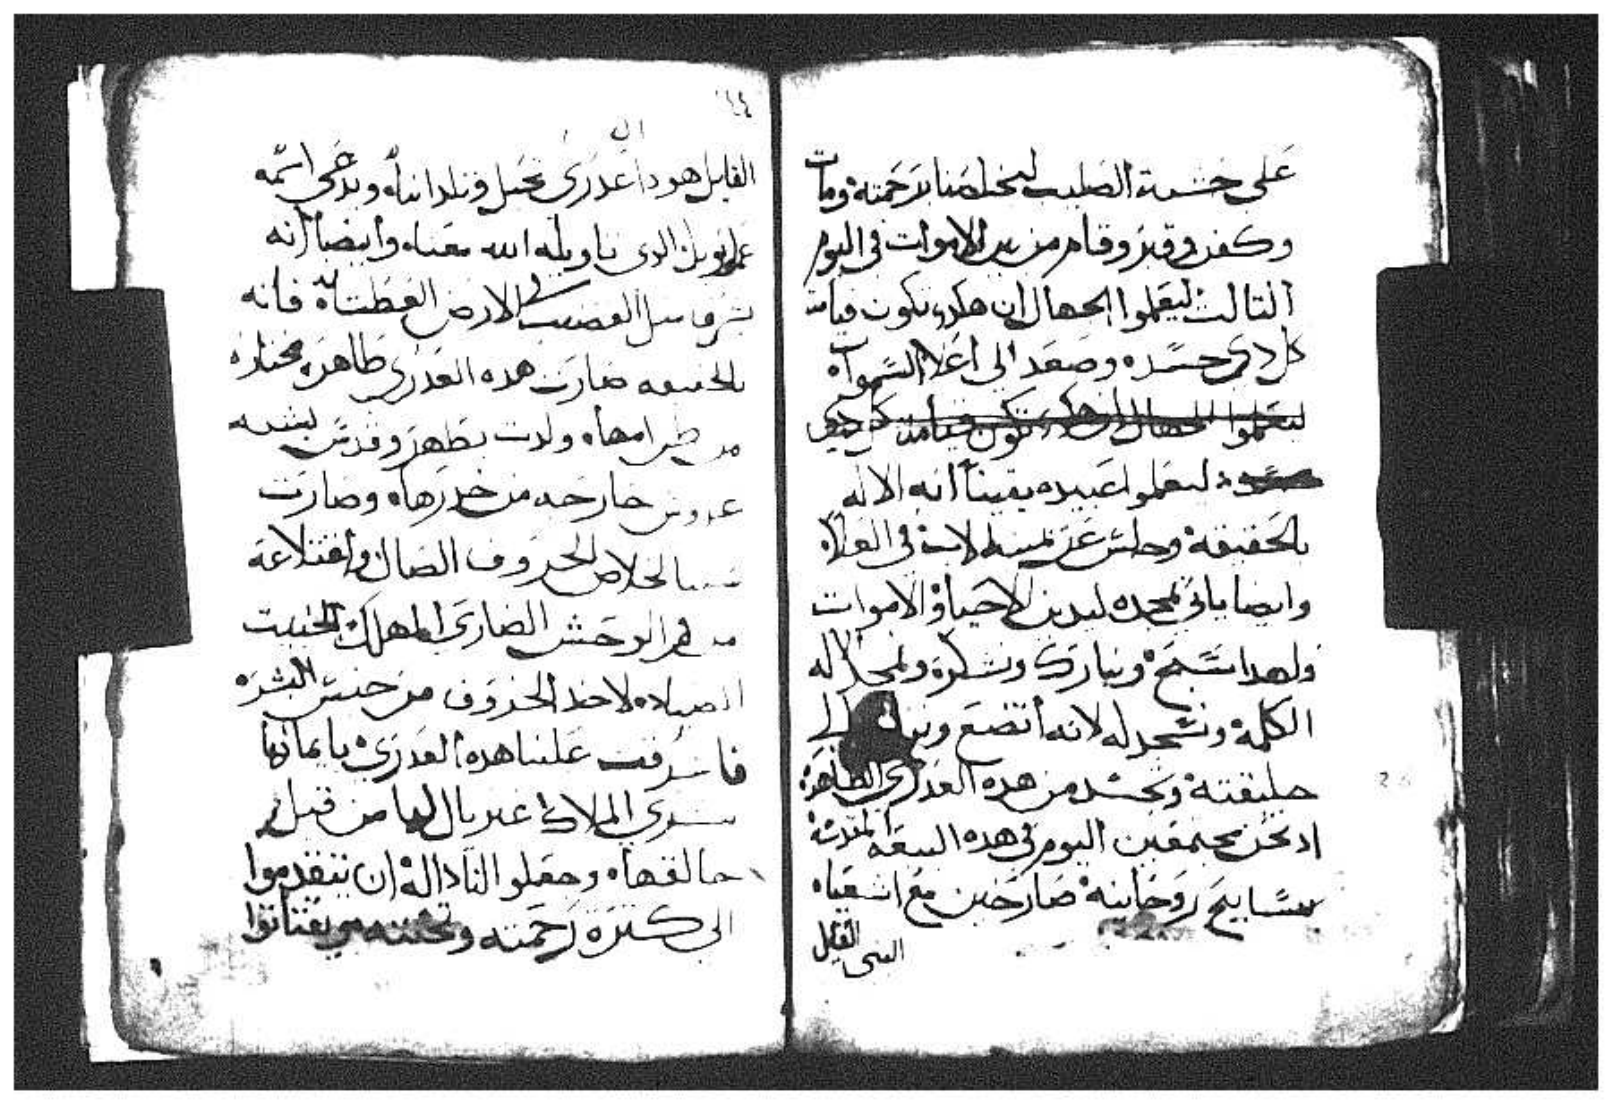 على خشبة الصليب ليخلصنا برحمته ومات
وكفن وقبر وقام من بين الاموات في اليوم
الثالث ليعلموا الجهال ان هكدى تكون قيامة
كل دى جسده وصعد الى أعلا السموات
ليعلموا الجهال ان هكدى تكون قيامة كل ديى
ليعلموا عبيده يقيناً أنه الاله
بالحقيقة وجلس عن يمين الاب في العلاه
وايضا ياتي بمجده ليدين الاحياة والاموات
ولهدا نسبح ونبارك ونشكره ونمجد الاله
الكلمة ونسجد له لانه أتضع الي
خليقتة وتجسد من هده العدرى الطاهرة
اد نحن مجتمعين اليوم في هده البيعة المقدسة
بتسابيح روحانية صارخين مع اشعياه
النبى القايل
٢٤
القايل هودا العدرى تحبل وتلد ابناه ويدعى اسمه
عمانويل الدى تاويله الله معناه وأيضاً أنه
القضيب في الارض العطشانه فانه
بالحقيقه صارت هده العدرى طاهره مختاره
من امهاه ولدت بطهر وقدس بشبه
عروس خارجه من خدرهاه وصارت
سببا لخلاص الخروف الضال وأقتلاعه
من فم الوحش الضارى المهلك الخبيث
الصياده لاخد الخروف من جنس البشر
فاشرقت علينا هده العدرى بايمانها
ببشرى الملاك غبريال لها من قبل
خالقهاه وجعلو الناد الة ان يتقدموا
الى كثرة رحمته